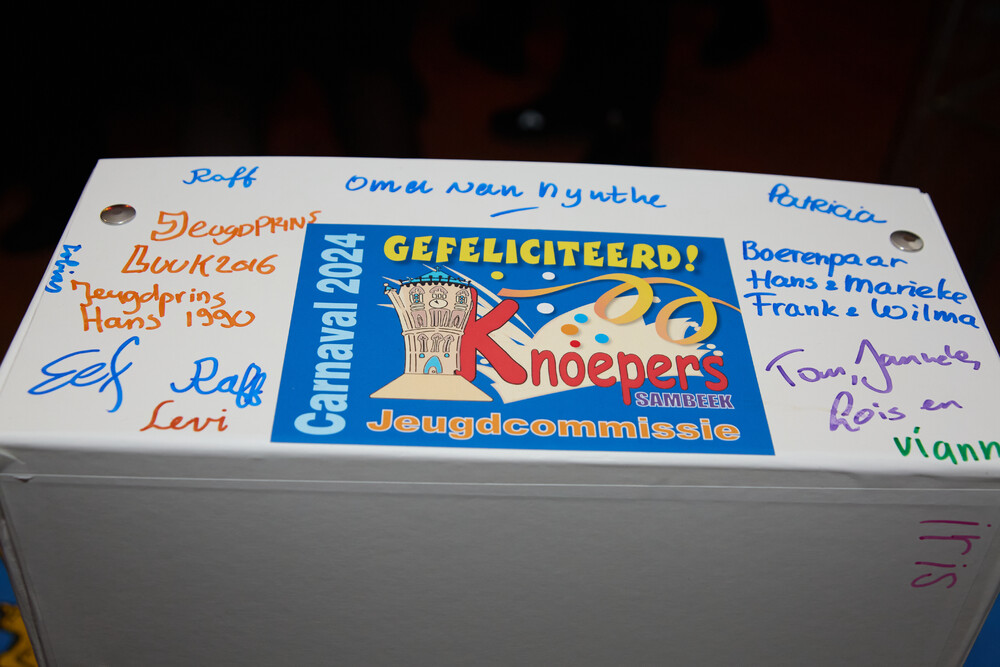 Raff
Oma van Nynthe
Patricia
Jeugdprins
Luuk 2016
Jeugdprins
Hans 1990
Eef
Raff
Levi
Carnaval 2024
GEFELICITEERD!
Knoepers
SAMBEEK
Jeugdcommissie
Boerenpaar
Hans & Marieke
Frank & Wilma
Tom, Janneke,
Lois en
viann
iris